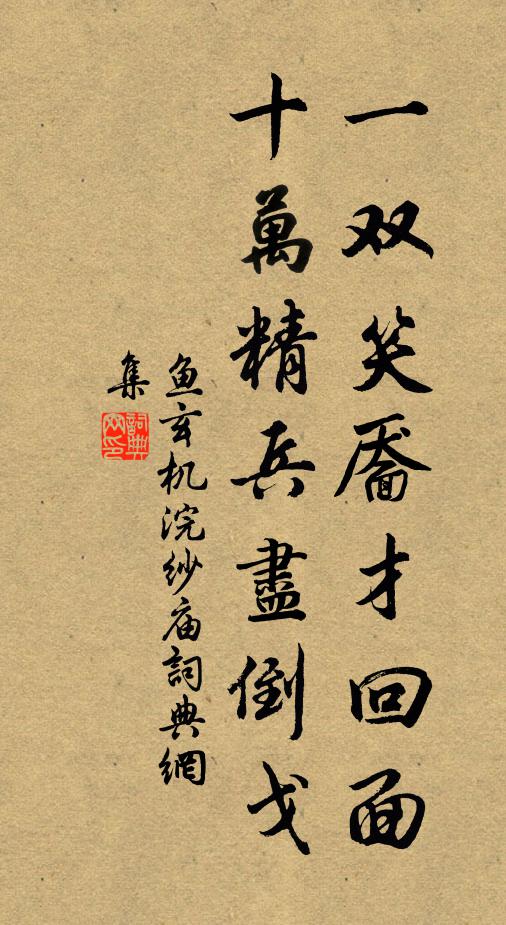 一双笑靥才回面
十萬精兵盡倒戈
鱼玄机浣纱庙詞典網
集
詞典
网印